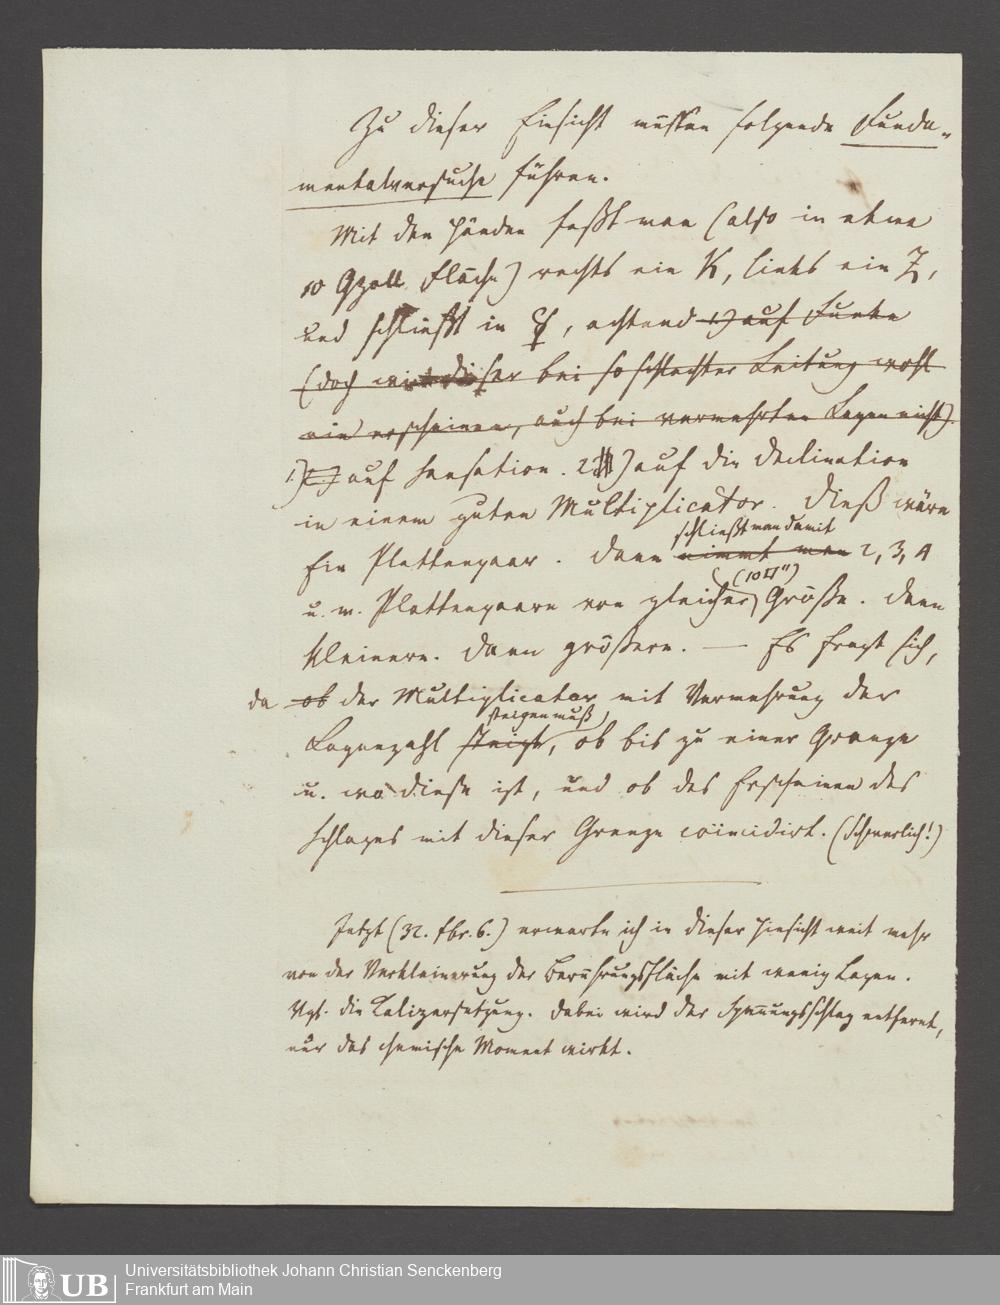 Zu dieser Einsicht müssen folgende Funda-
mentalversuche führen.
Mit den Händen faßt man (also in etwa
10 Qzoll Fläche) rechts ein K, links ein Z,
und schließt in , achtend 1) auf Funke
(doch wird dieser bei so schlechter Leitung wohl
nie erscheinen, auch bei vermehrten Lagen nicht).
1) auf Sensation. 2) auf die Declination
in einem guten Multiplicator. Dieß wäre
schließt man damit
Ein Plattenpaar. Dann nimmt man 2, 3, 4
(10□")
u. m. Plattenpaare von gleicher Größe. Dann
kleinere. Dann größere. — Es fragt sich,
da ob der Multiplicator mit Vermehrung der
steigen muß
Lagenzahl steigt, ob bis zu einer Grenze
u. wo diese ist, und ob das Erscheinen des
Schlages mit dieser Grenze coincidirt. (Schwerlich!)
Jetzt (32. Fbr. 6.) erwarte ich in dieser Hinsicht weit mehr
von der Verkleinerung der Berührungsfläche mit wenig Lagen.
Vgl. die Kalizersetzung. Dabei wird der Spannungsschlag entfernt,
nur das chemische Moment wirkt.
UB
Universitätsbibliothek Johann Christian Senckenberg
Frankfurt am Main